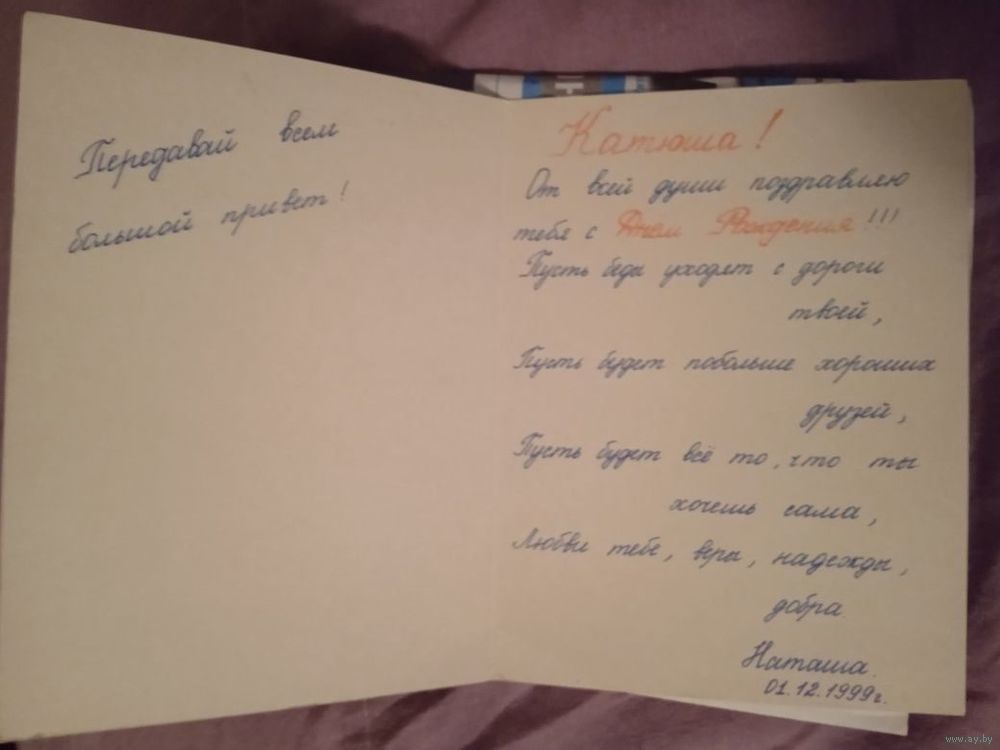 Передавай всем
большой привет!
Катюша!
От всей души поздравляю
тебя с Днём Рождения!!!
Пусть беды уходят с дороги
твоей,
Пусть будет побольше хороших
друзей,
Пусть будет всё то, что ты
хочешь сама,
Любви тебе, веры, надежды,
добра.
Наташа.
01.12.1999г.
www.ay.by